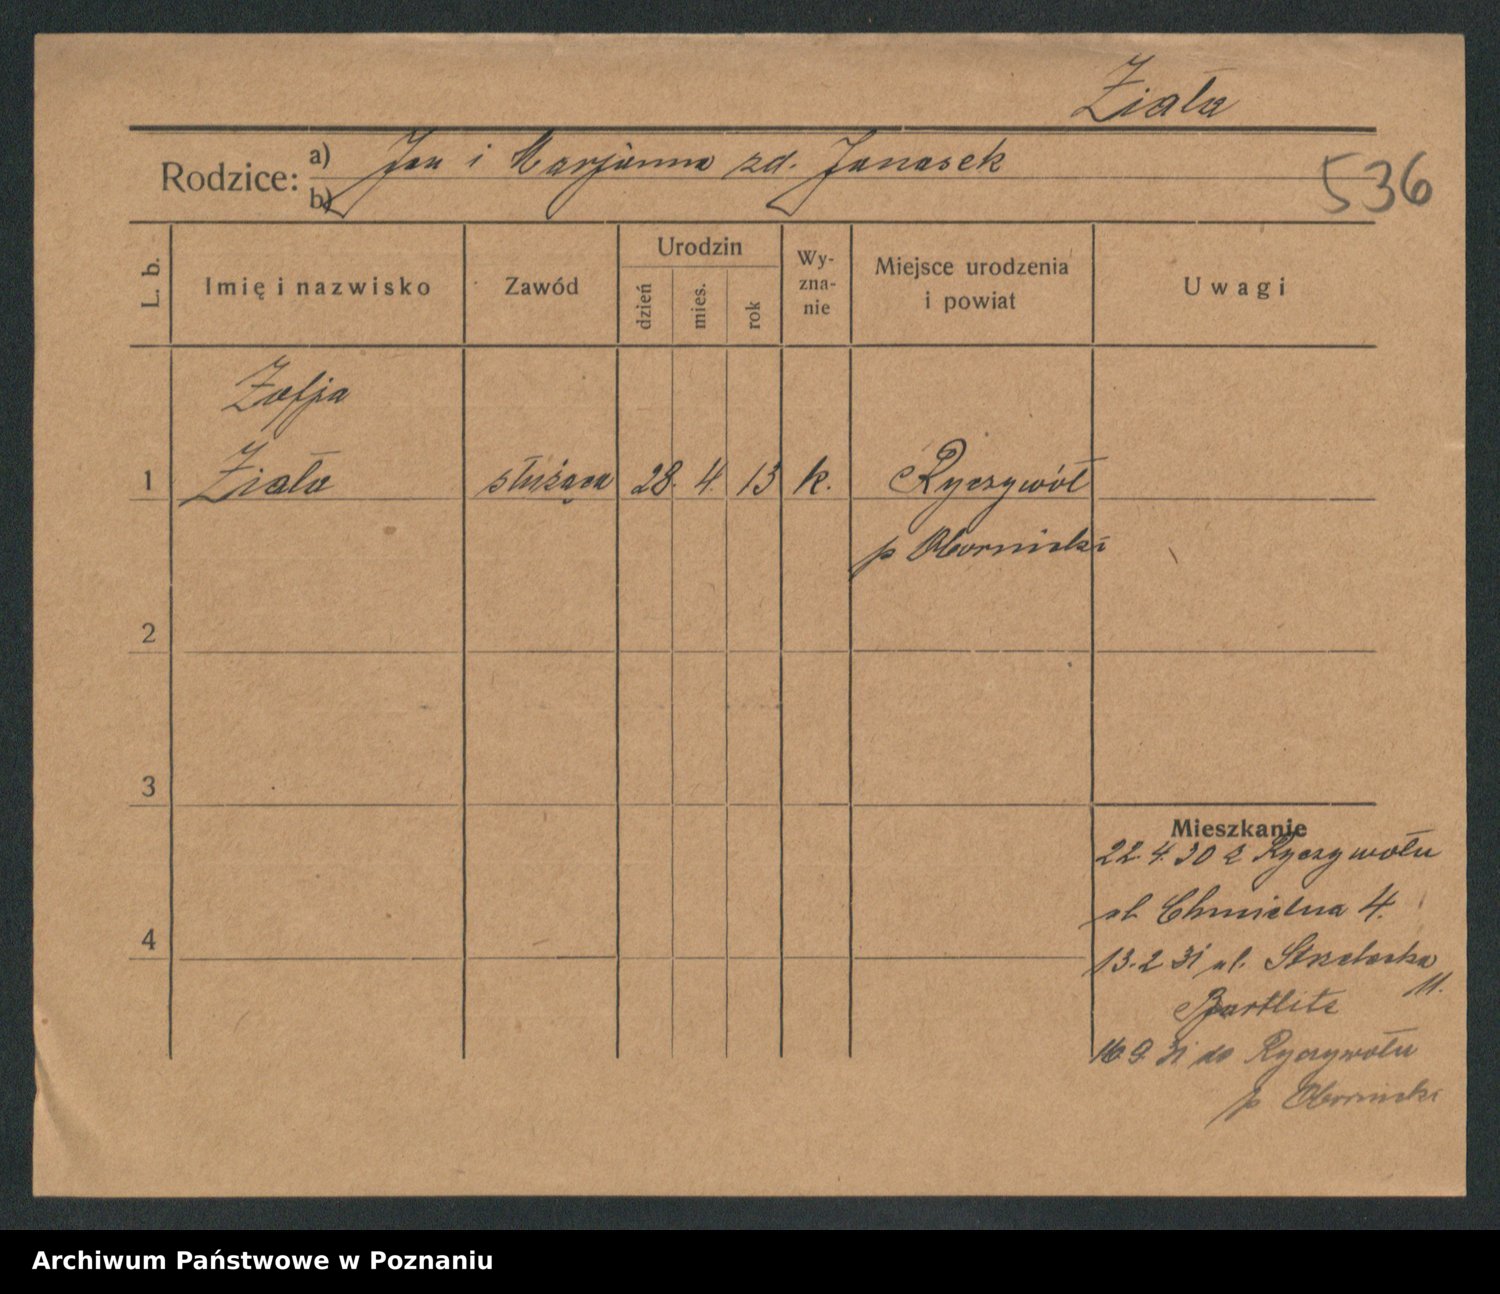 Ziała
Rodzice: a) Jan i Marjanna zd. Janasek
b)
536
L. b.
Imię i nazwisko
Zawód
Urodzin
dzień
mies.
rok
Wy-
zna-
nie
Miejsce urodzenia
i powiat
Uwagi
Zofja
1 Ziała służąca 28. 4. 13 k. Ryczywół
p Obornicki
2
3
Mieszkanie
22 4. 30 z Ryczywołu
ul Chmielna 4.
4
13. 2 31 ul. Strzelecka
11.
16 9 31 do Ryczywołu
p Obornicki
Archiwum Państwowe w Poznaniu